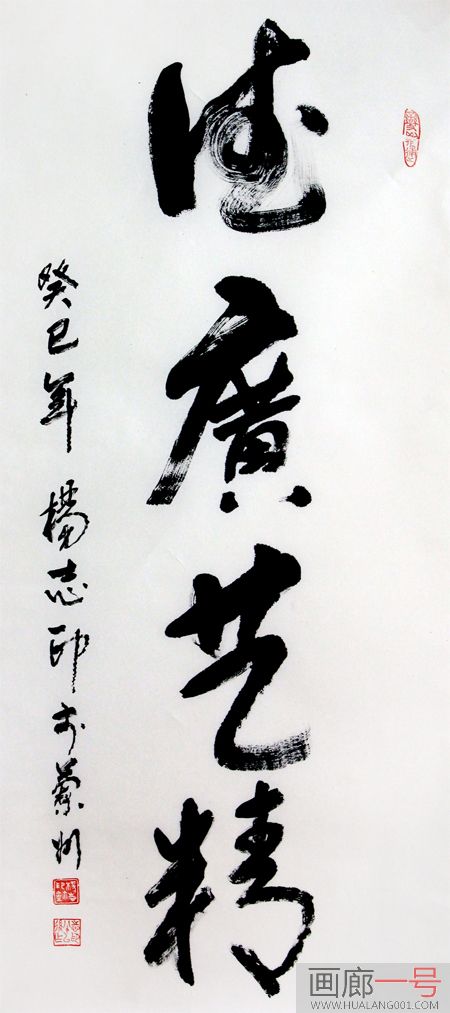 德廣艺精
癸巳年 楊志印 於蘭州
画廊一号
WWW.HUALANG001.COM